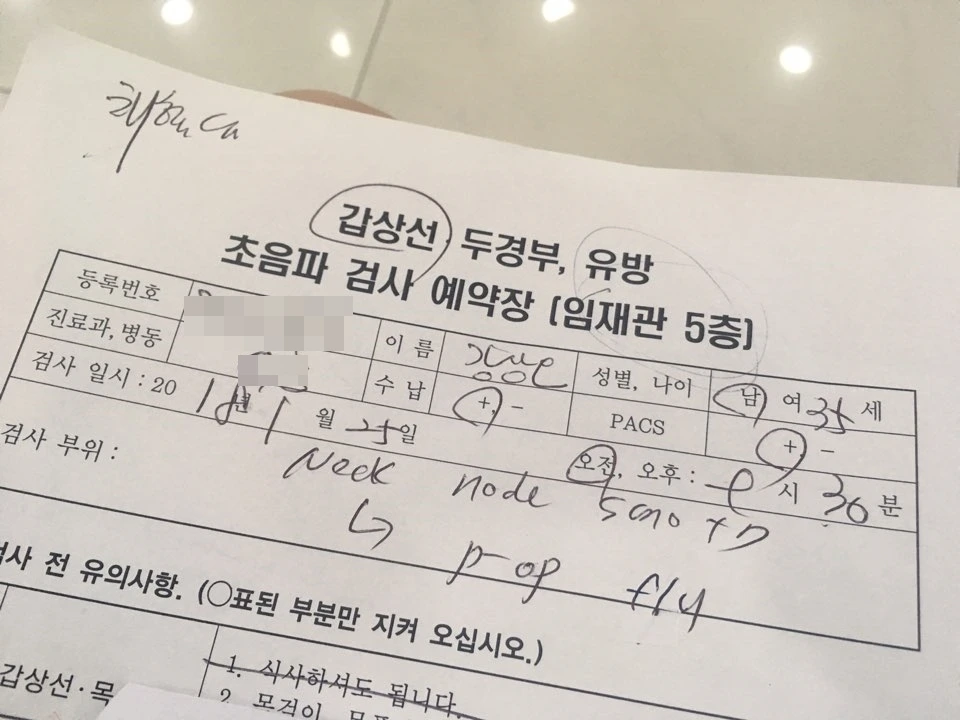 갑상선, 두경부, 유방
초음파 검사 예약장 [임재관 5층]
등록번호
진료과, 병동 이 름 성별, 나이 남 여 35 세
수 납 +, - PACS + -
검사 일시 : 20 18 년 1 월 25 일 오전, 오후 : 시 30 분
검사 부위 : Neck node sono
↳ p-op f/u
검사 전 유의사항. (○표된 부분만 지켜 오십시오.)
갑상선·목
1. 식사하셔도 됩니다.
2. 목걸이